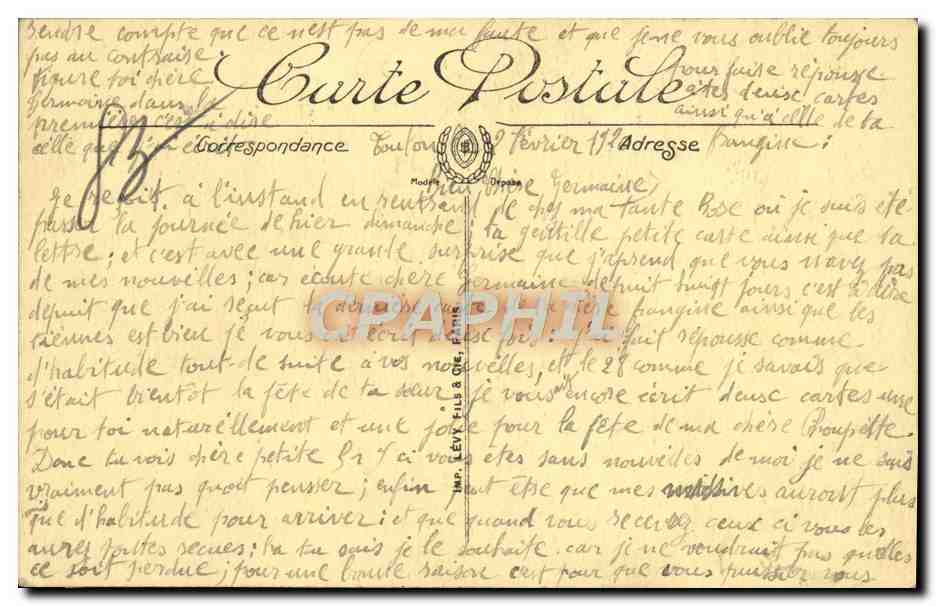 rendre compte que ce n'est pas de ma faute et que je ne vous oublie toujours
pas au contraire
figure toi chère
Germaine dans la
première c'est à dire
celle que
Carte Postale
pour faire répousse
deuse cartes
ainsi qu'à celle de ta
frangine:
Correspondance
Toulon 2 Février 192
Adresse
Modèle Déposé
Bien Chère Germaine,
Je reçoit à l'instand en rentrant de chez ma tante Rose où je suis été
passer la journée de hier dimanche ta gentille petite carte ainsi que ta
lettre; et c'est avec une grande surprise que j'aprend que vous n'avez pas
de mes nouvelles; car écoute chère Germaine depuit huit jours c'est à dire
depuit que j'ai reçut ta dernière frangine ainsi que les
tiennes est bien je vous fait répousse comme
d'habitude tout de suite à vos nouvelles, et le 28 comme je savais que
s'était bientot la fête de ta sœur je vous ais encore écrit deuse cartes une
pour toi naturellement et une jolie pour la fête de ma chère Poupette.
Donc tu vois chère petite si vous êtes sans nouvelles de moi je ne sais
vraiment pas quoit pensser; enfin peut être que mes missives auront plus
que d'habitude pour arriver; et que quand vous recevez ceux ci vous les
aurez toutes reçues; ta tu sais je le souhaite car je ne voudrait pas qu'elles
ce soit perdue; pour une bonne raison c'est pour que vous puissiez vous
IMP. LÉVY FILS & CIE, PARIS
CPAPHIL